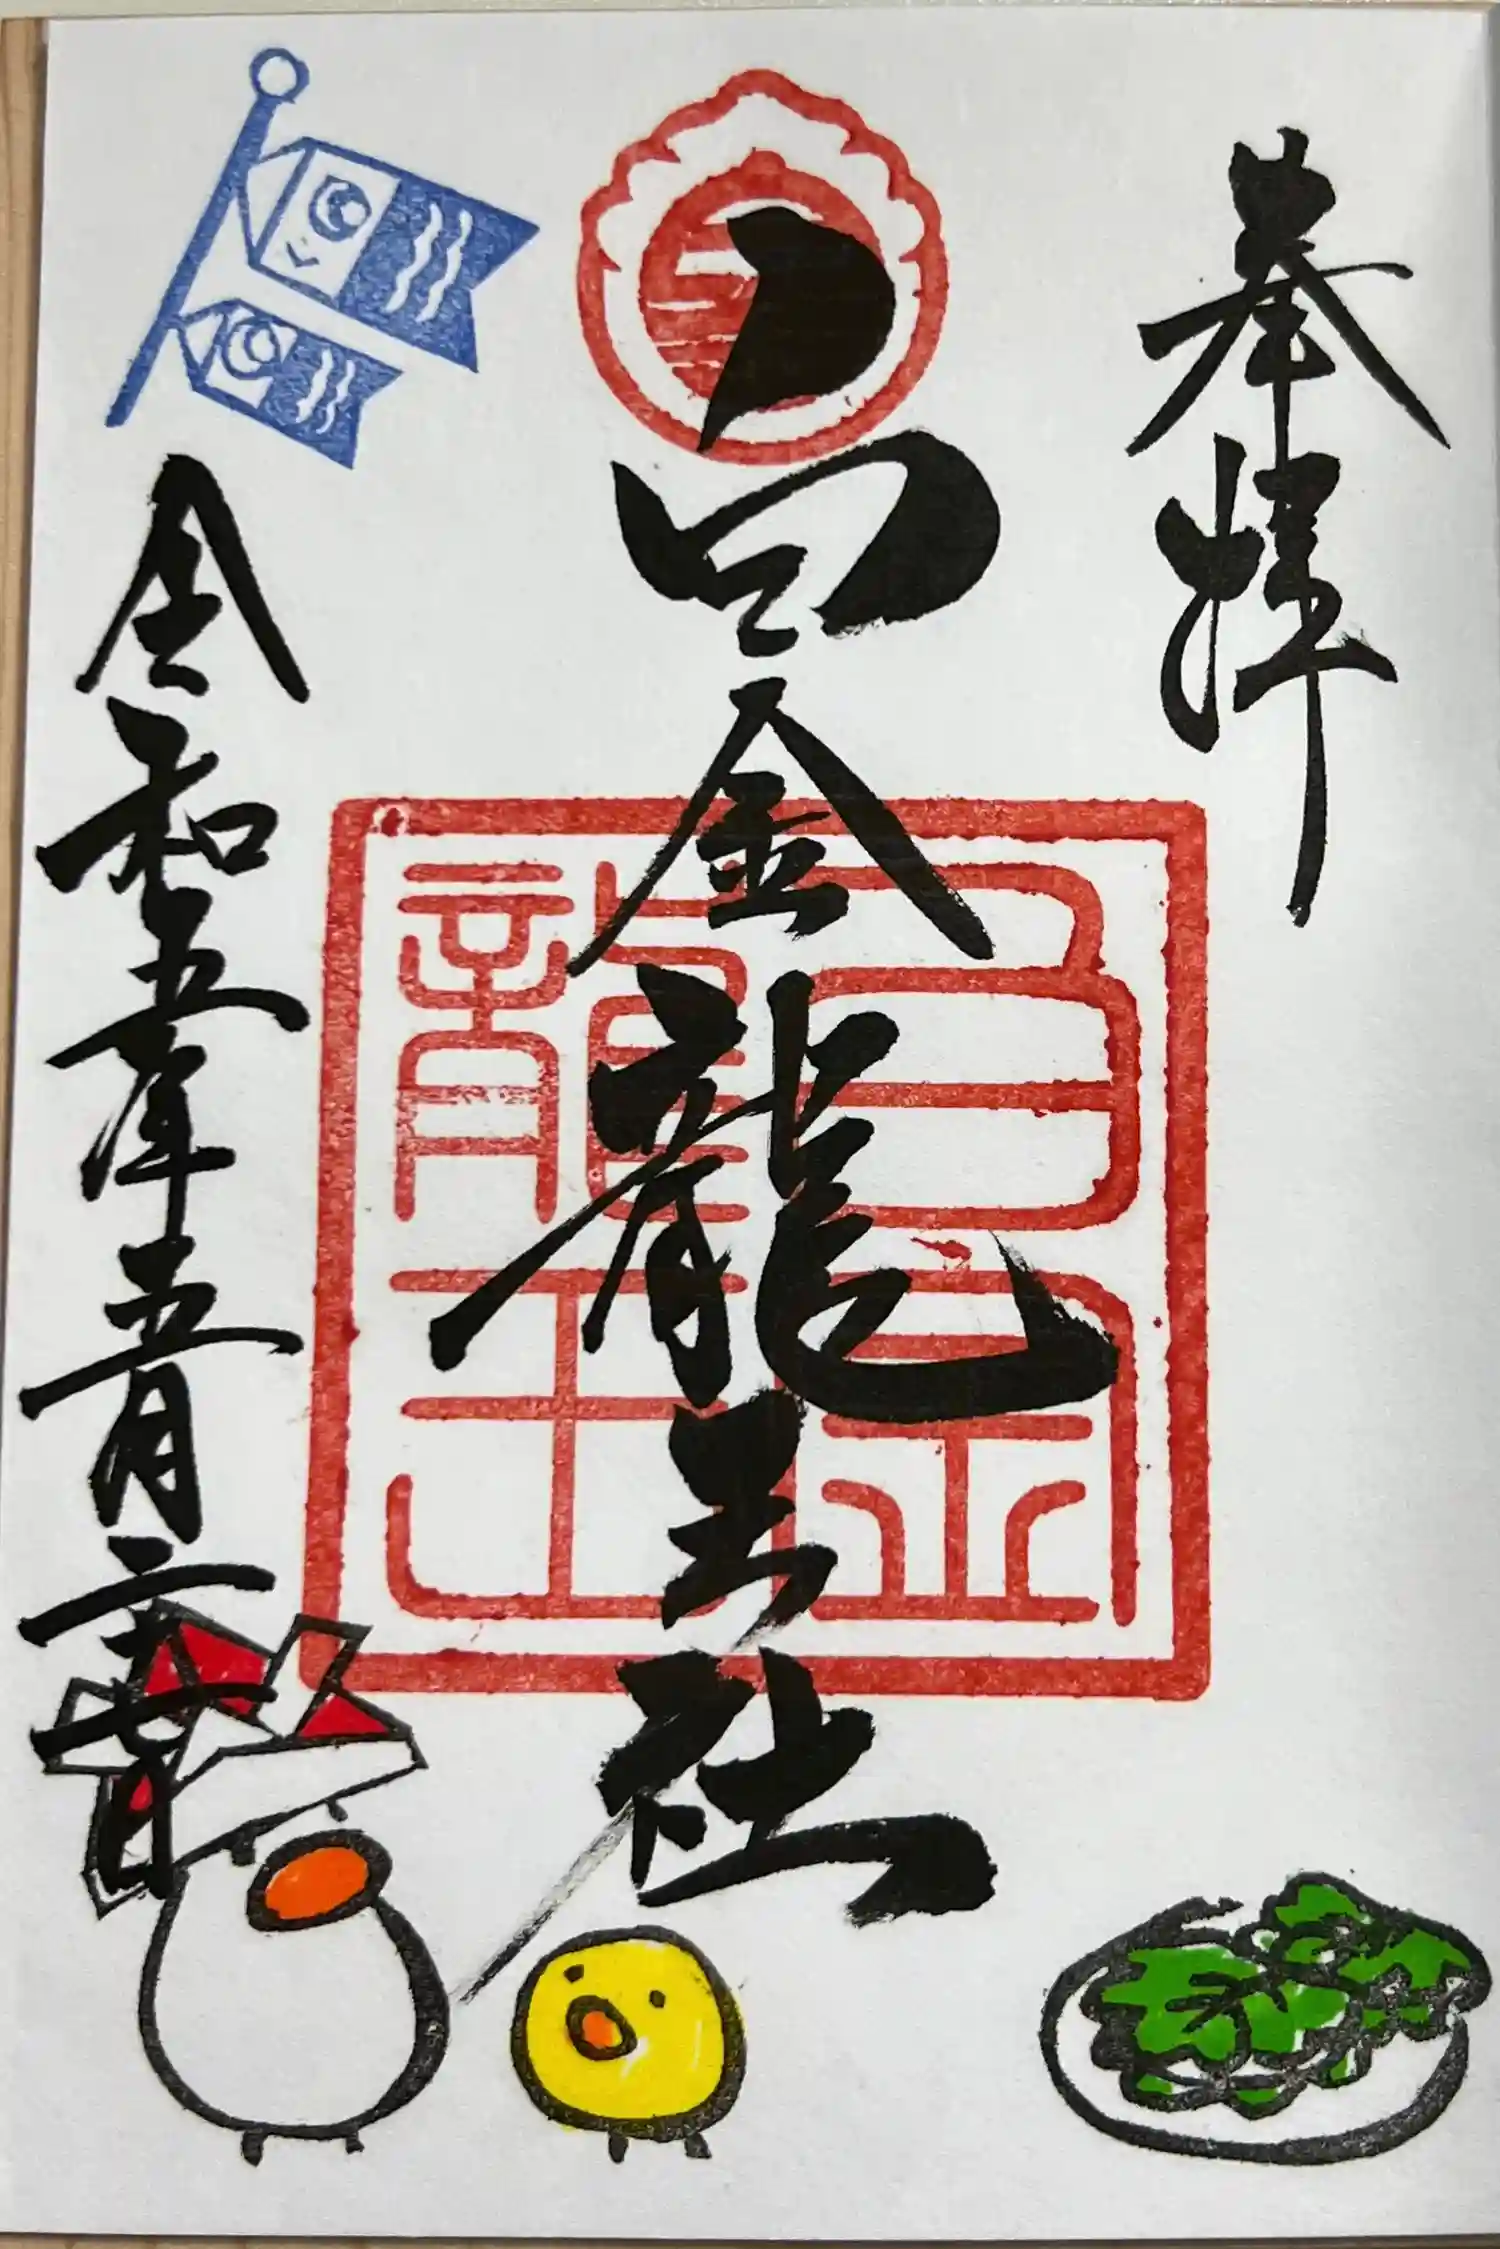 奉拝
白金龍王社
令和五年五月二
白金
龍王